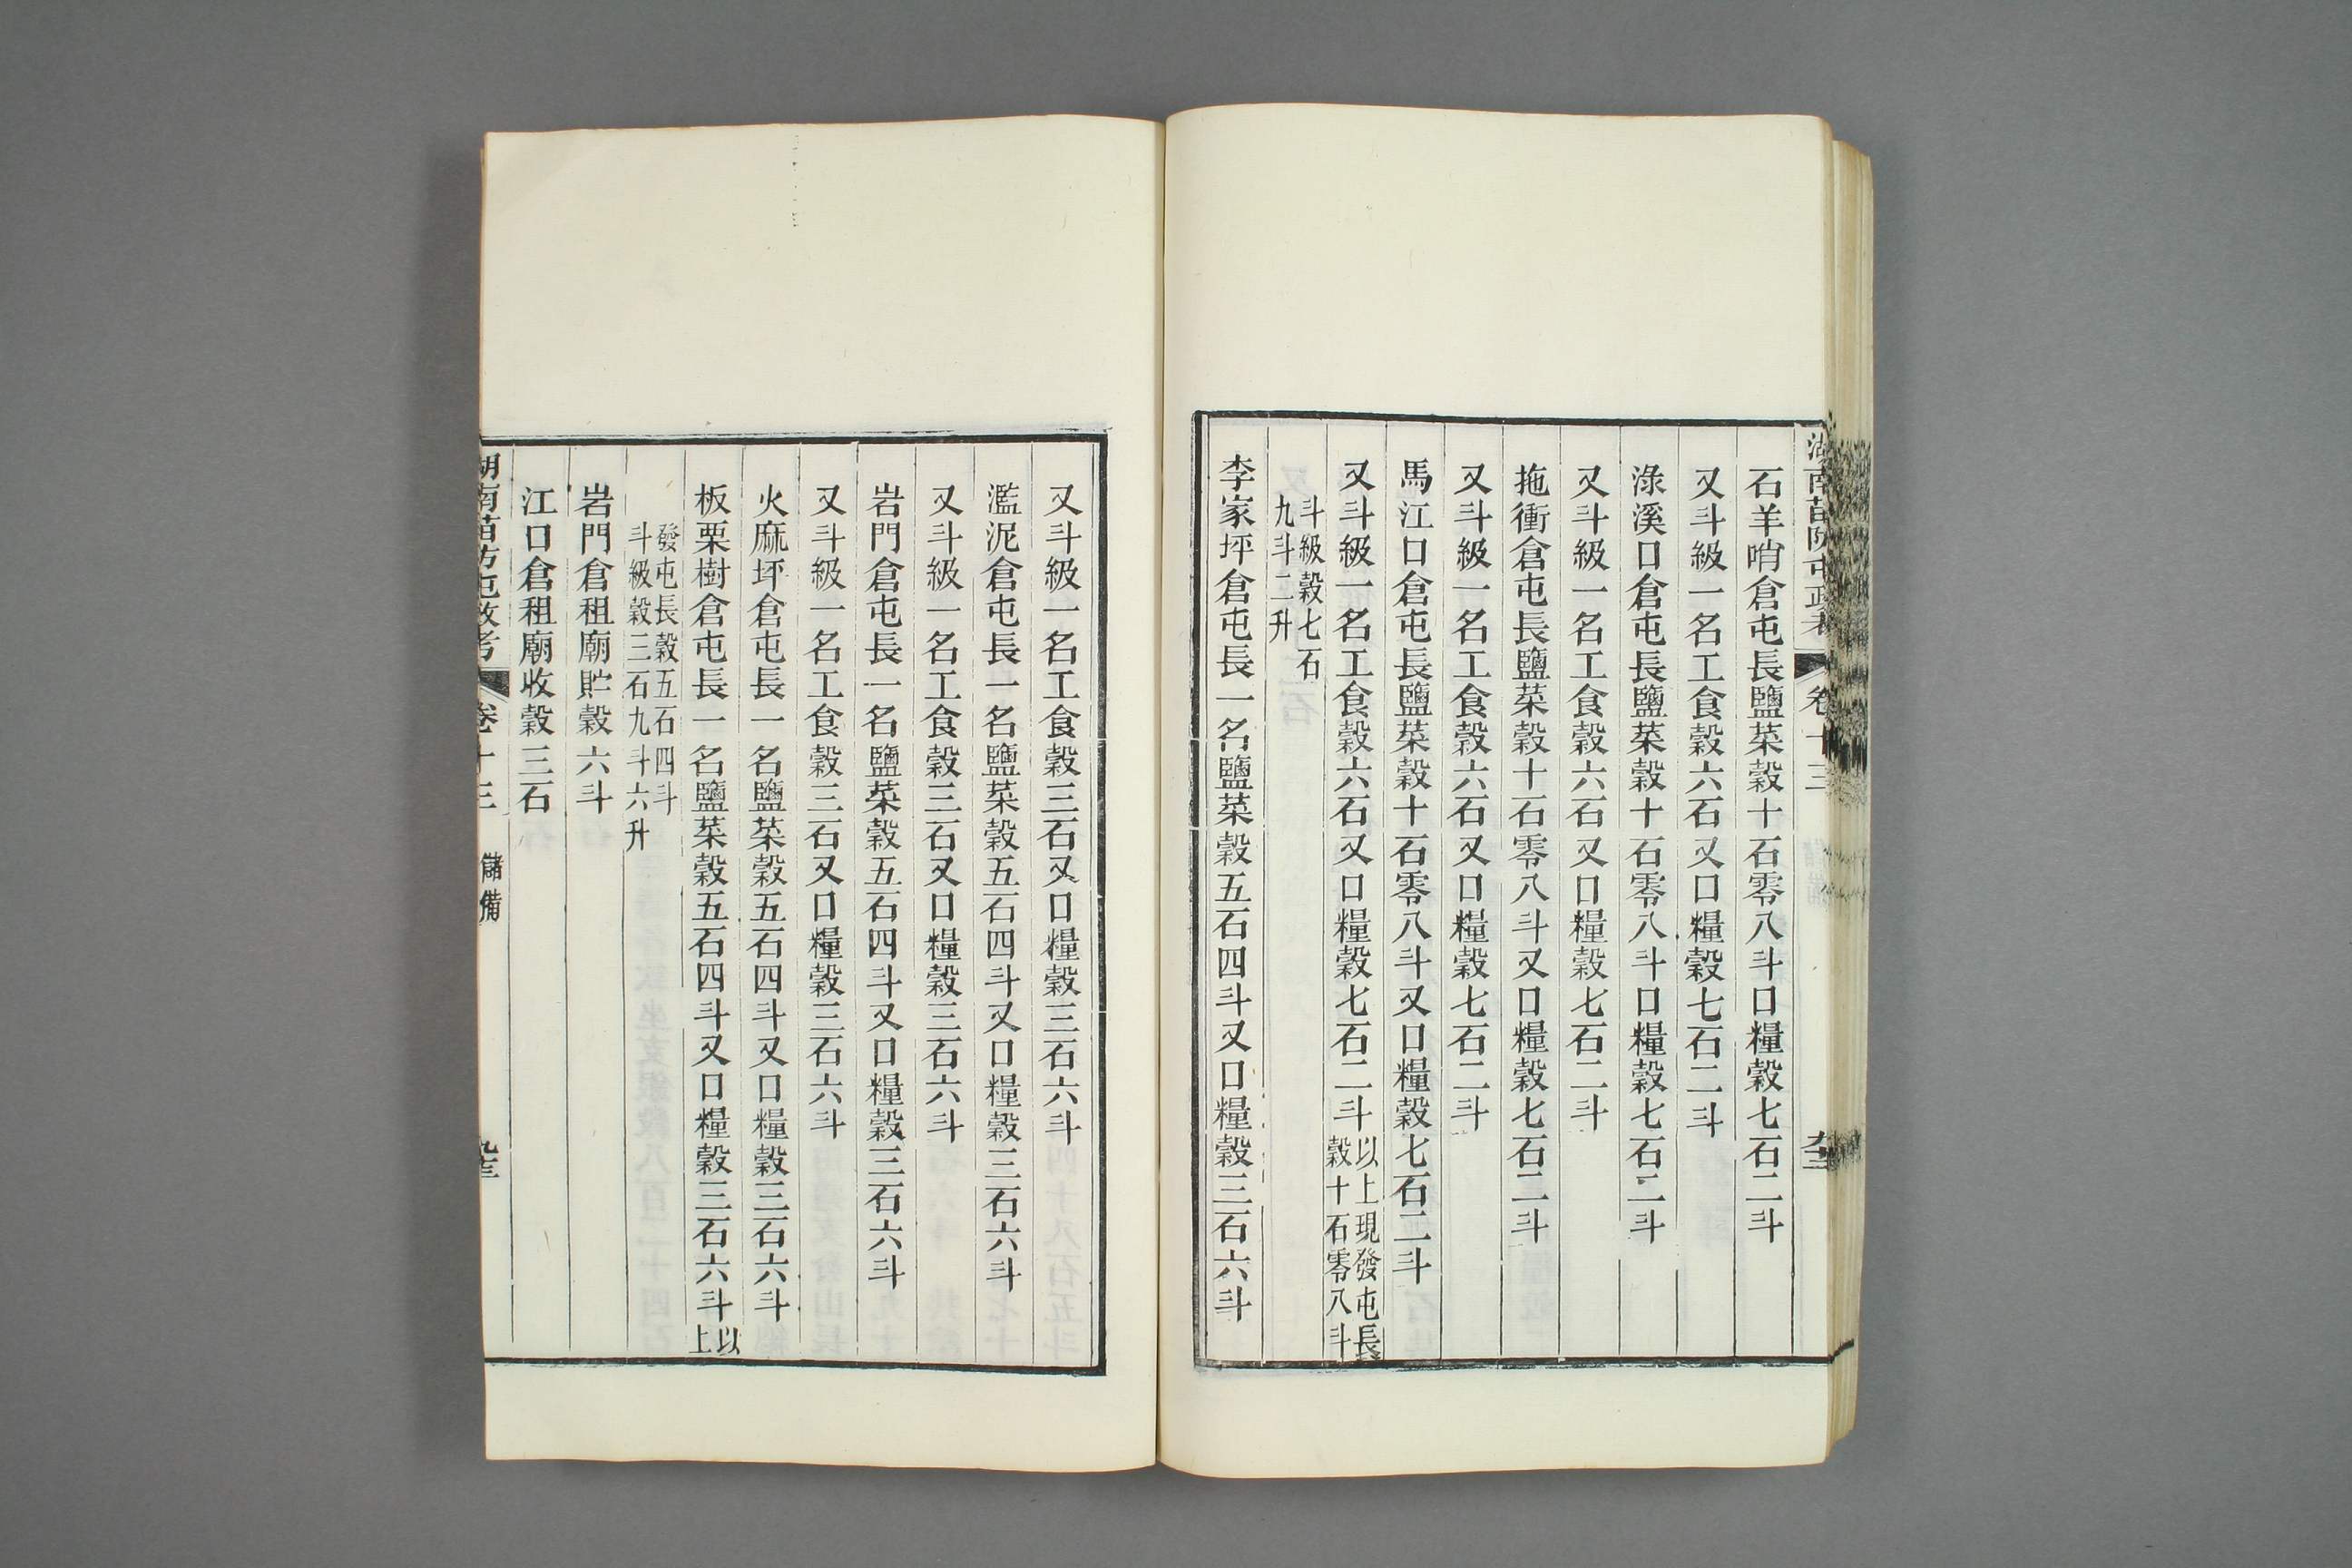 湖南苗防屯政考 卷十三
石羊哨倉屯長鹽菜穀十石零八斗口糧穀七石二斗
又斗級一名工食穀六石又口糧穀七石二斗
淥溪口倉屯長鹽菜穀十石零八斗口糧穀七石二斗
又斗級一名工食穀六石又口糧穀七石二斗
拖衝倉屯長鹽菜穀十石零八斗又口糧穀七石二斗
又斗級一名工食穀六石又口糧穀七石二斗
馬江口倉屯長鹽菜穀十石零八斗又口糧穀七石二斗
又斗級一名工食穀六石又口糧穀七石二斗
以上現發屯長
穀十石零八斗
斗級穀七石
九斗二升
李家坪倉屯長一名鹽菜穀五石四斗又口糧穀三石六斗
又斗級一名工食穀三石又口糧穀三石六斗
濫泥倉屯長一名鹽菜穀五石四斗又口糧穀三石六斗
又斗級一名工食穀三石又口糧穀三石六斗
岩門倉屯長一名鹽菜穀五石四斗又口糧穀三石六斗
又斗級一名工食穀三石又口糧穀三石六斗
火麻坪倉屯長一名鹽菜穀五石四斗又口糧穀三石六斗
板栗樹倉屯長一名鹽菜穀五石四斗又口糧穀三石六斗
以
上
發屯長穀五石四斗
斗級穀三石九斗六升
岩門倉租廟貯穀六斗
江口倉租廟收穀三石
湖南苗防屯政考 卷十三 儲備